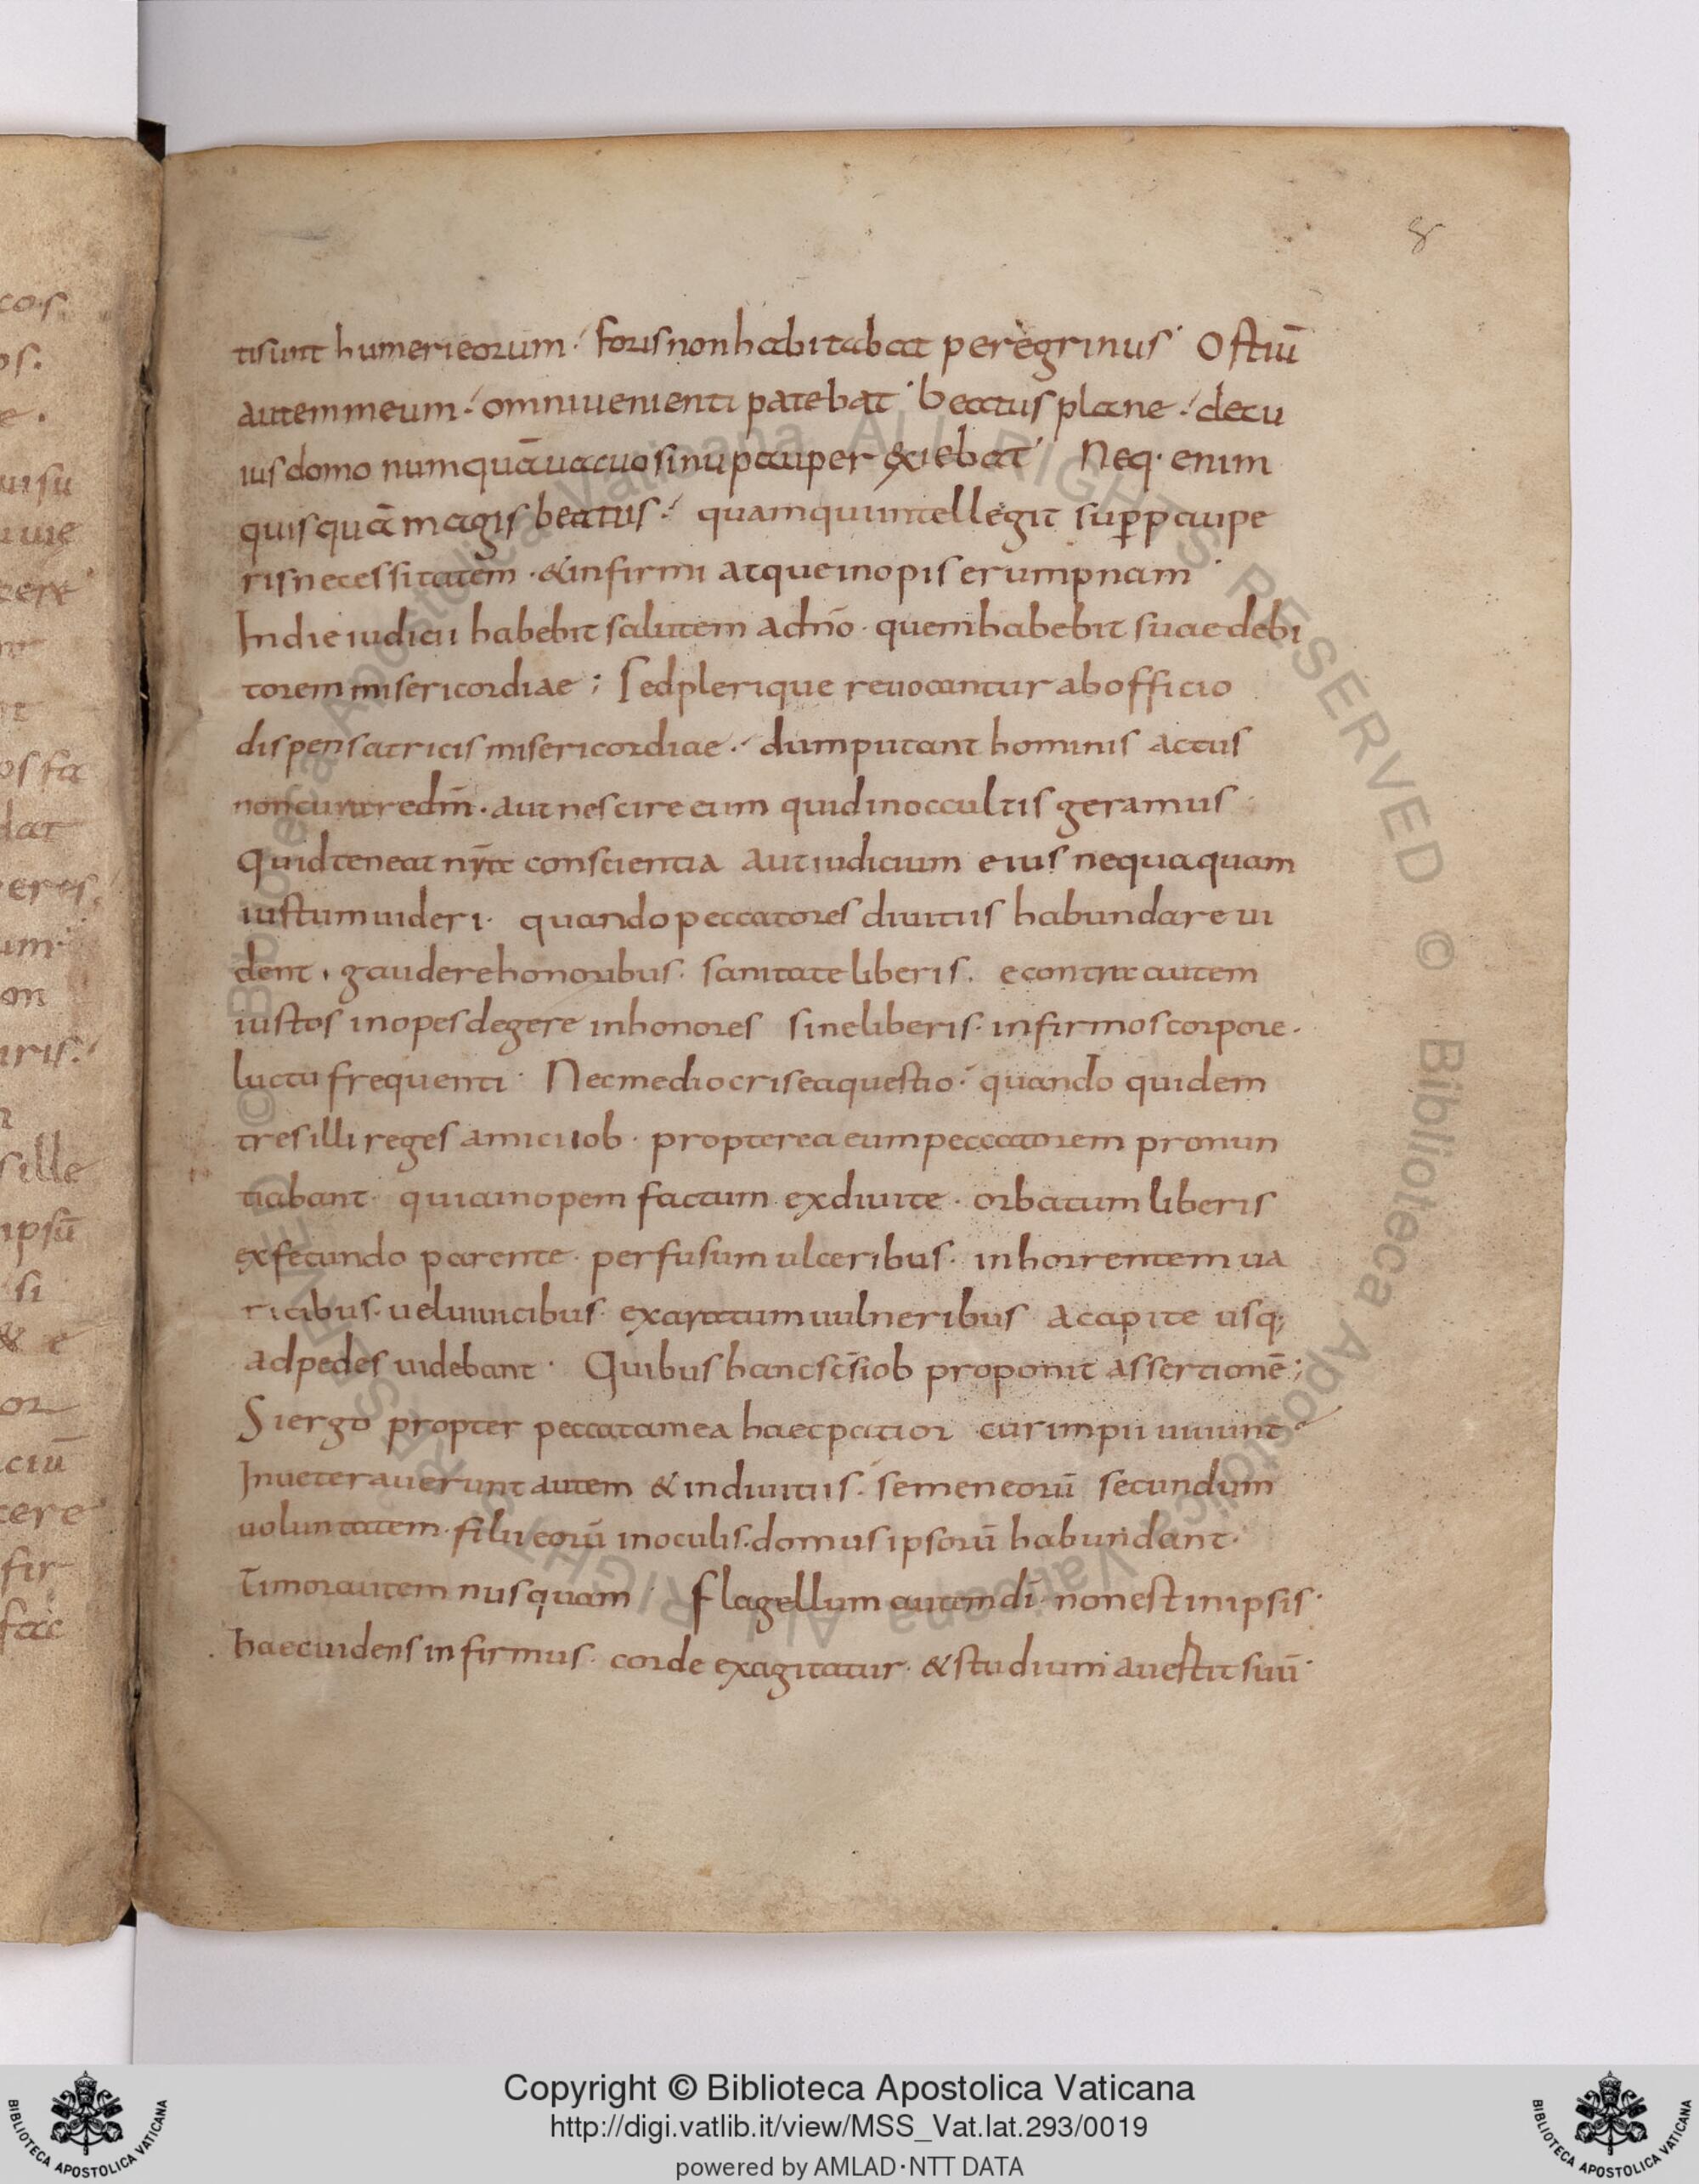 8
tisunt humerieorum. forisnonhabitabat peregrinus. Ostiū
autemmeum. omniuenienti patebat. beatusplane. decu
iusdomo numquāuacuosinupauper exiebat. Neq. enim
quisquā magis beatus. quamquiintellegit sup̄paupe
risnecessitatem. &infirmi atqueinopis erumpnam.
Indieiudicii habebit salutem adn̄o. quemhabebit suaedebi
toremmisericordiae; Sedplerique reuocantur abofficio
dispensatricis misericordiae. dumputant hominis actus
noncuraredn̄m. aut nescire eum quidinoccultis geramus
Quidteneat nr̄a conscientia aut iudicium eius nequaquam
iustumuideri. quandopeccatores diuitiis habundare ui
dent. gauderehonoribus. sanitate liberis. econtra autem
iustos inopesdegere inhonores sineliberis. infirmoscorpore.
luctufrequenti. Necmediocriseaquestio. quando quidem
tresilli reges amiciiob. propterea eumpeccatorem pronun
tiabant. quiainopem factum exdiuite. orbatum liberis
exfecundo parente. perfusum ulceribus. inhorrentem ua
ricibus. ueluiuicibus exaratumuulneribus acapite usq;
adpedes uidebant. Quibus hancsc̄siob proponit assertionē;
Siergo propter peccatamea haecpatior cur impii uiuunt
Inueterauerunt autem & indiuitiis. semeneorū secundum
uoluntatem. filii eorū inoculis. domus ipsorū habundant.
Timorautem nusquam. flagellum autemdī. nonest inipsis.
haecuidens infirmus. corde exagitatur. &studium auertit suū.
Copyright © Biblioteca Apostolica Vaticana
http://digi.vatlib.it/view/MSS_Vat.lat.293/0019
powered by AMLAD·NTT DATA